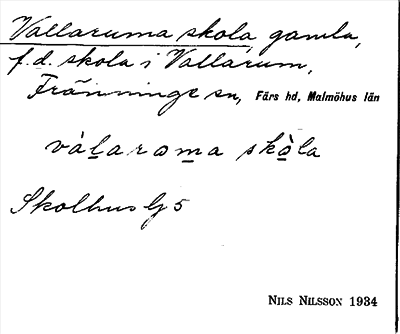 Vallaruma skola, gamla,
f.d. skola i Vallarum,
Fränninge sn, Färs hd, Malmöhus län
vàlaroma skòla
Skolhus Lj 5
NILS NILSSON 1934